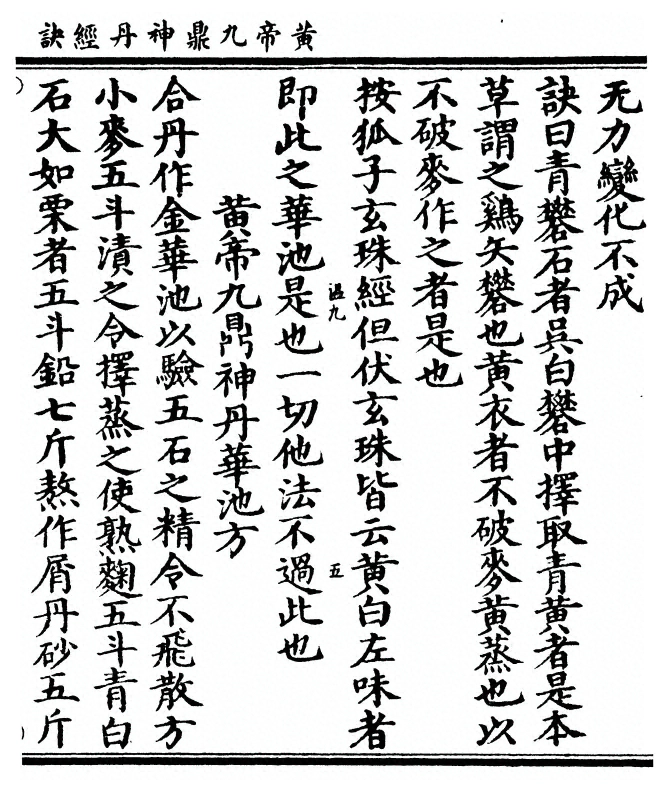 黃帝九鼎神丹經訣
无力變化不成
訣曰青礬石者吳白礬中擇取青黃者是本
草謂之鷄矢礬也黃衣者不破麥黃蒸也以
不破麥作之者是也
按狐子玄珠經但伏玄珠皆云黃白左味者
即此之華池是也一切他法不過此也
黃帝九鼎神丹華池方
合丹作金華池以驗五石之精令不飛散方
小麥五斗漬之令擇蒸之使熟麴五斗青白
石大如栗者五斗鉛七斤熬作屑丹砂五斤
溫九
五